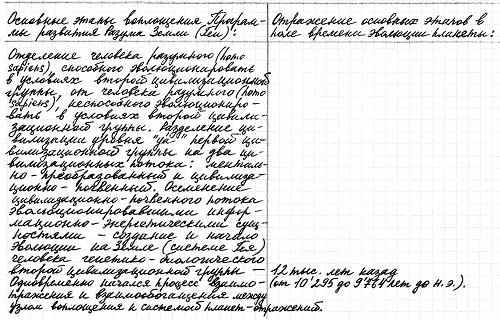 Основные этапы воплощения Програм-
мы развития Разума Земли (Геи):
Отражение основных этапов в
поле времени эволюции планеты:
Отделение человека разумного (homo
sapiens), способного эволюционировать
в условиях второй цивилизационной
группы, от человека разумного (homo
sapiens), неспособного эволюциониро-
вать в условиях второй цивили-
зационной группы. Разделение ци-
вилизации уровня "уа" первой ци-
вилизационной группы на два ци-
вилизационных потока: ментально-
но-преобразованный и цивилиза-
ционно-почвенный. Осеменение
цивилизационно-почвенного потока
эволюционировавшими инфор-
мационно-энергетическими сущ-
ностями - создание и начало
эволюции на Земле (системе Гея)
человека генетико-биологического
второй цивилизационной группы —
Одновременно начался процесс взаимо-
тражения и взаимообогащения между
узлом воплощения и системой планет-отражений.
12 тыс. лет назад
(от 10'295 до 9764 лет до н.э.).